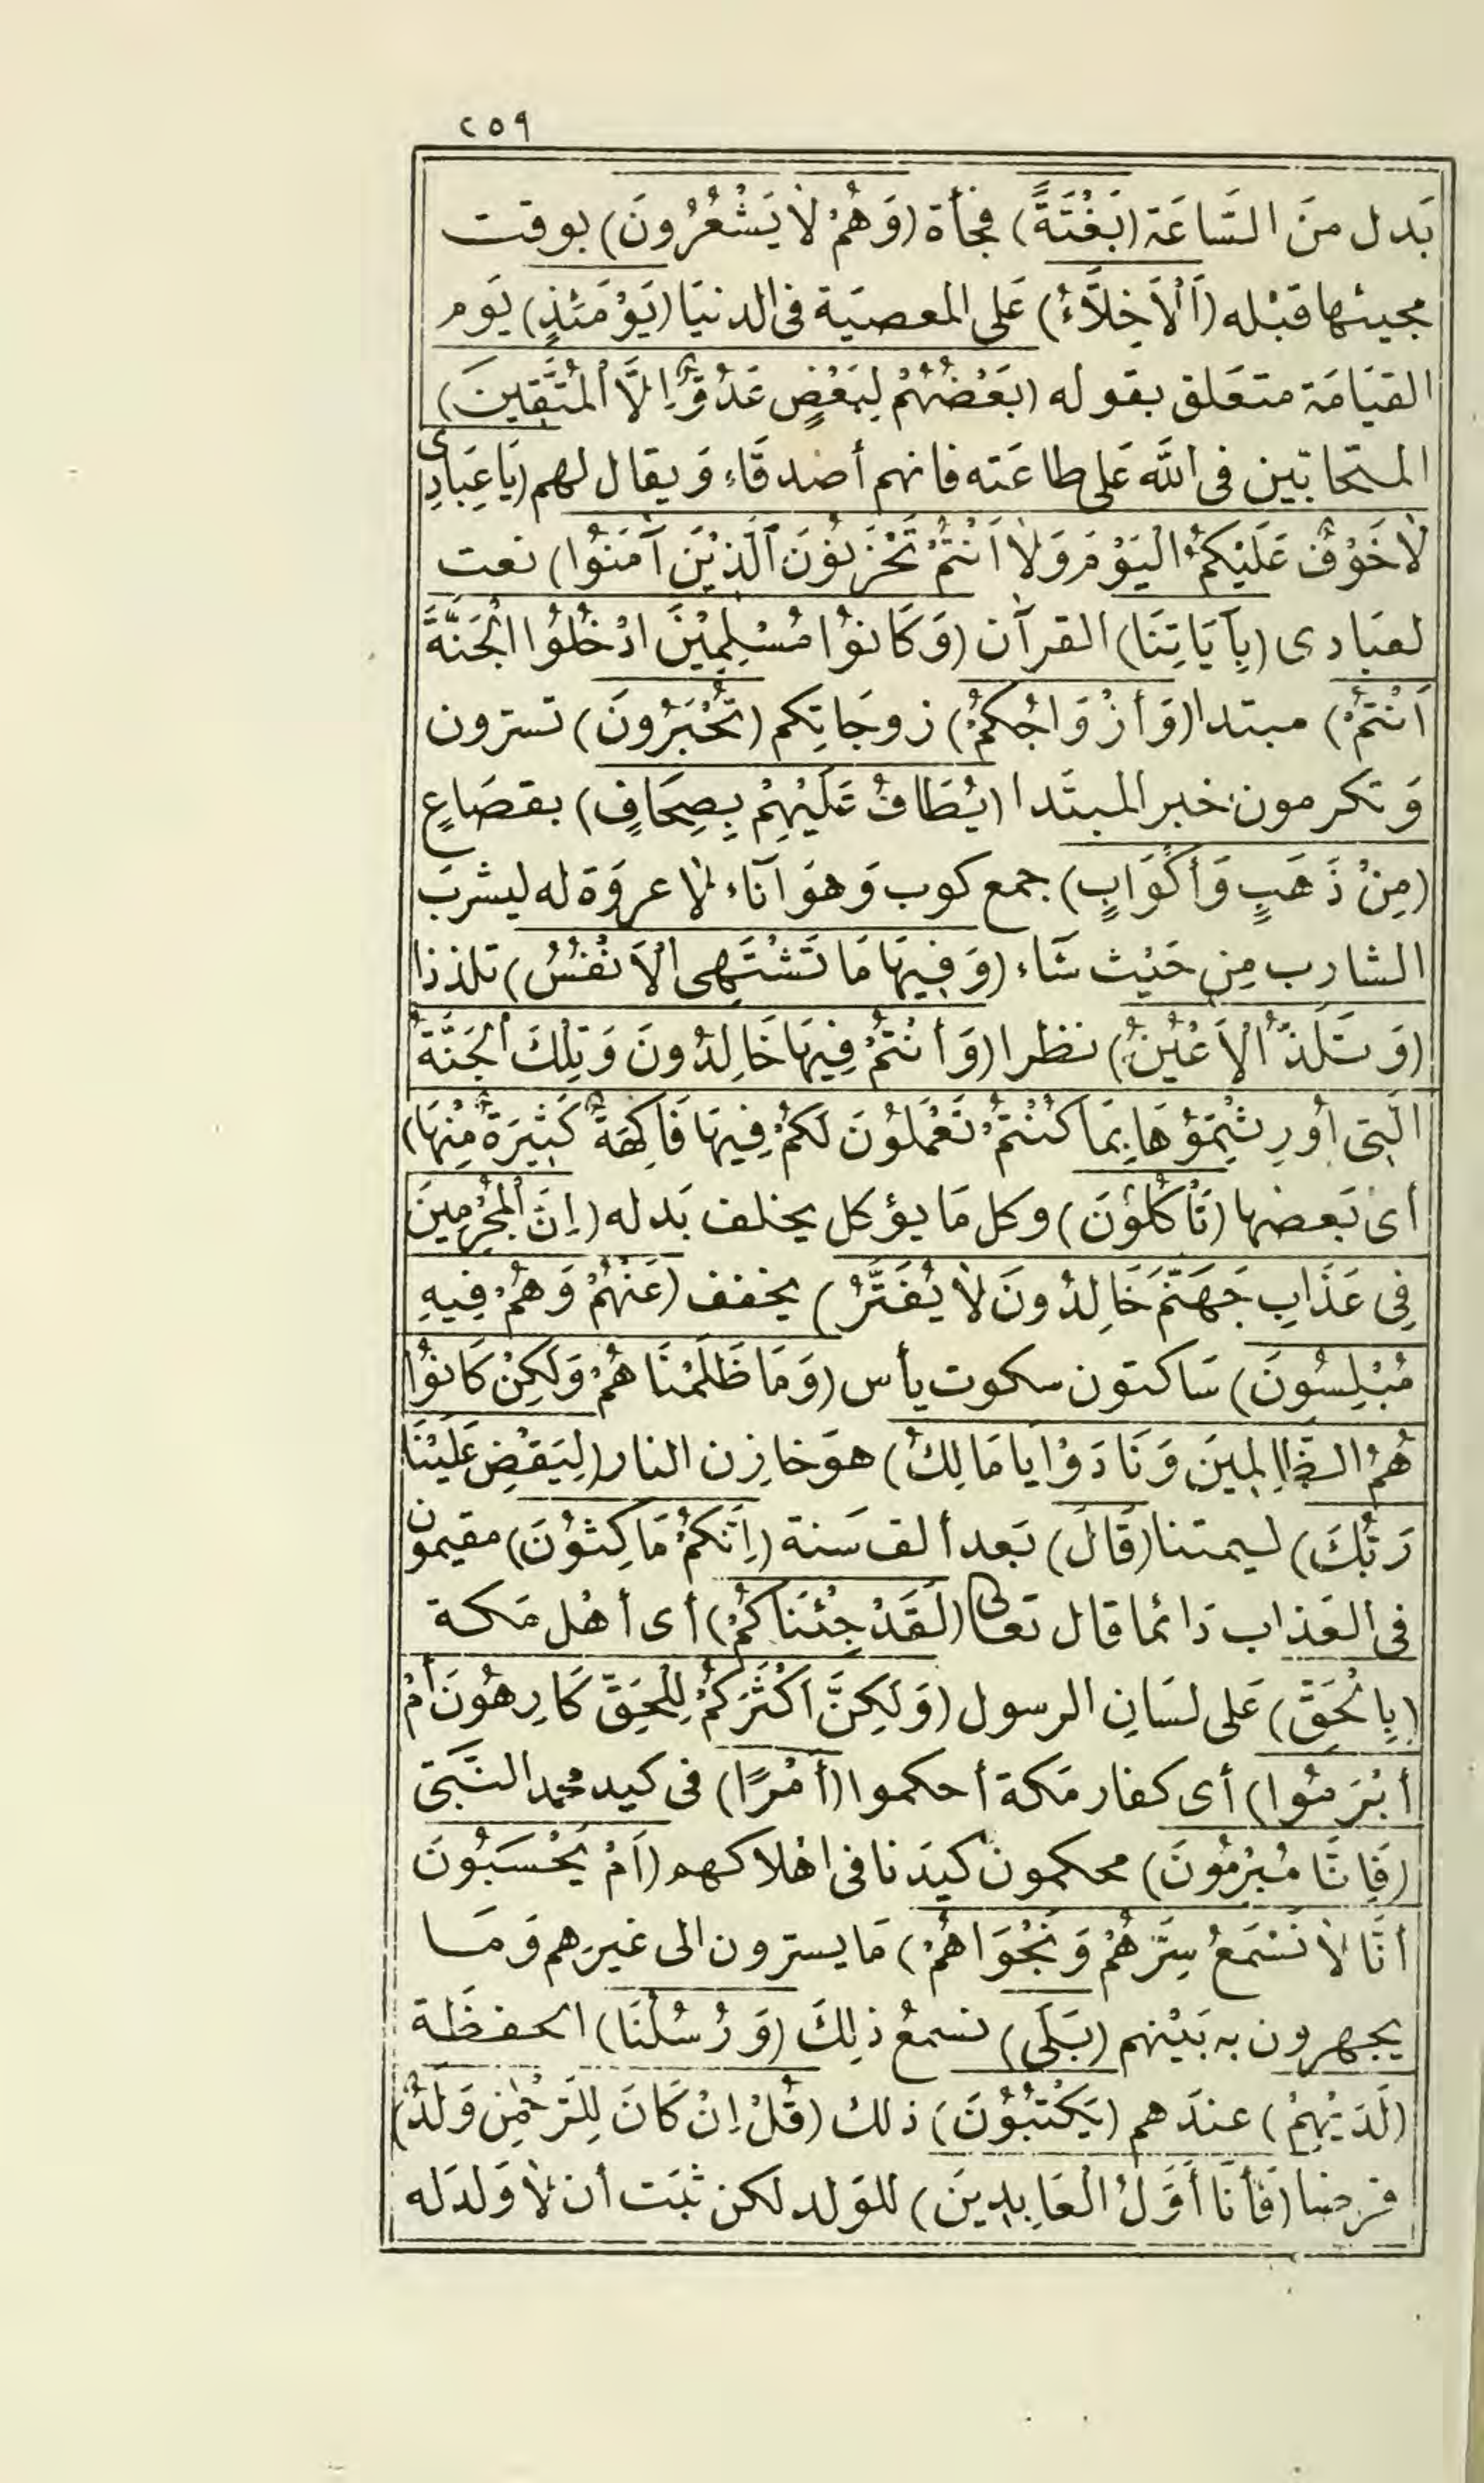 ٢٥٩
بَدل منَ السَّاعَة (بَغْتَةً) فجأة (وَهُمْ لَا يَشْعُرُونَ) بوقت
مجيئها قَبْله (اَلْأَخِلَّاءُ) عَلى المعصيَة فى الدنيَا (يَوْمَئِذٍ) يَوم
القيَامَة متعَلق بقوله (بَعْضُهُمْ لِبَعْضٍ عَدُوٌّ اِلَّا الْمُتَّقِينَ)
المتحَابّين فى اللَّه عَلى طاعَته فانهم أصْدقَاء وَيقال لهم (يَا عِبَادِى
لَا خَوْفٌ عَلَيْكُمُ الْيَوْمَ وَلَا اَنْتُمْ تَحْزَنُوْنَ اَلَّذِيْنَ آمَنُوْا) نعت
لعبَادى (بِآيَاتِنَا) القرآن (وَكَانُوْا مُسْلِمِيْنَ ادْخُلُوا الْجَنَّةَ
اَنْتُمْ) مبتدا (وَأَزْوَاجُكُمْ) زوجَاتِكم (تُحْبَرُونَ) تسترون
وَتكرمون خبر المبتَدا (يُطَافُ عَلَيْهِمْ بِصِحَافٍ) بقصَاعٍ
(مِنْ ذَهَبٍ وَأَكْوَابٍ) جمع كوب وَهوَ آناء لَا عروَة له ليشربَ
الشارب مِن حَيْث شَاء (وَفِيهَا مَا تَشْتَهِى الْأَنْفُسُ) تلذذا
(وَتَلَذُّ الْأَعْيُنُ) نظرا (وَأَنْتُمْ فِيهَا خَالِدُونَ وَتِلْكَ الْجَنَّةُ
الَّتِى أُورِثْتُمُوْهَا بِمَا كُنْتُمْ تَعْمَلُوْنَ لَكُمْ فِيهَا فَاكِهَةٌ كَثِيرَةٌ مِنْهَا)
أى بَعضها (تَأْكُلُوْنَ) وكل مَا يؤكل يخلف بَدله (اِنَّ الْمُجْرِمِينَ
فِى عَذَابِ جَهَنَّمَ خَالِدُونَ لَا يُفَتَّرُ) يخفف (عَنْهُمْ وَهُمْ فِيهِ
مُبْلِسُونَ) سَاكتون سكوت يأس (وَمَا ظَلَمْنَاهُمْ وَلَكِنْ كَانُوْا
هُمُ الظَّالِمِينَ وَنَادَوْا يَا مَالِكُ) هوَ خازِن النار (لِيَقْضِ عَلَيْنَا
رَبُّكَ) ليمتنا (قَالَ) بَعد ألف سَنة (اِنَّكُمْ مَاكِثُوْنَ) مقيمون
فى العَذاب دَائما قال تعالى (لَقَدْ جِئْنَاكُمْ) أى أهْل مَكة
(بِالْحَقِّ) عَلى لسَانِ الرسول (وَلَكِنَّ اَكْثَرَكُمْ لِلْحَقِّ كَارِهُونَ أَمْ
أَبْرَمُوا) أى كفار مَكة أحكموا (أَمْرًا) فى كيد محمد النَّبىّ
(فَاِنَّا مُبْرِمُونَ) محكمون كيدَنا فى اهْلاكهم (اَمْ يَحْسَبُونَ
أَنَّا لَا نَسْمَعُ سِرَّهُمْ وَنَجْوَاهُمْ) مَا يسترون الى غيرهم وَمَا
يجهرون به بَيْنهم (بَلَى) نسمعُ ذلِكَ (وَرُسُلُنَا) الحفظَة
(لَدَيْهِمْ) عندَهم (يَكْتُبُوْنَ) ذلك (قُلْ اِنْ كَانَ لِلرَّحْمٰنِ وَلَدٌ)
فرضا (فَأَنَا أَوَّلُ الْعَابِدِينَ) للوَلد لكن ثبَت أن لَا وَلدَ له